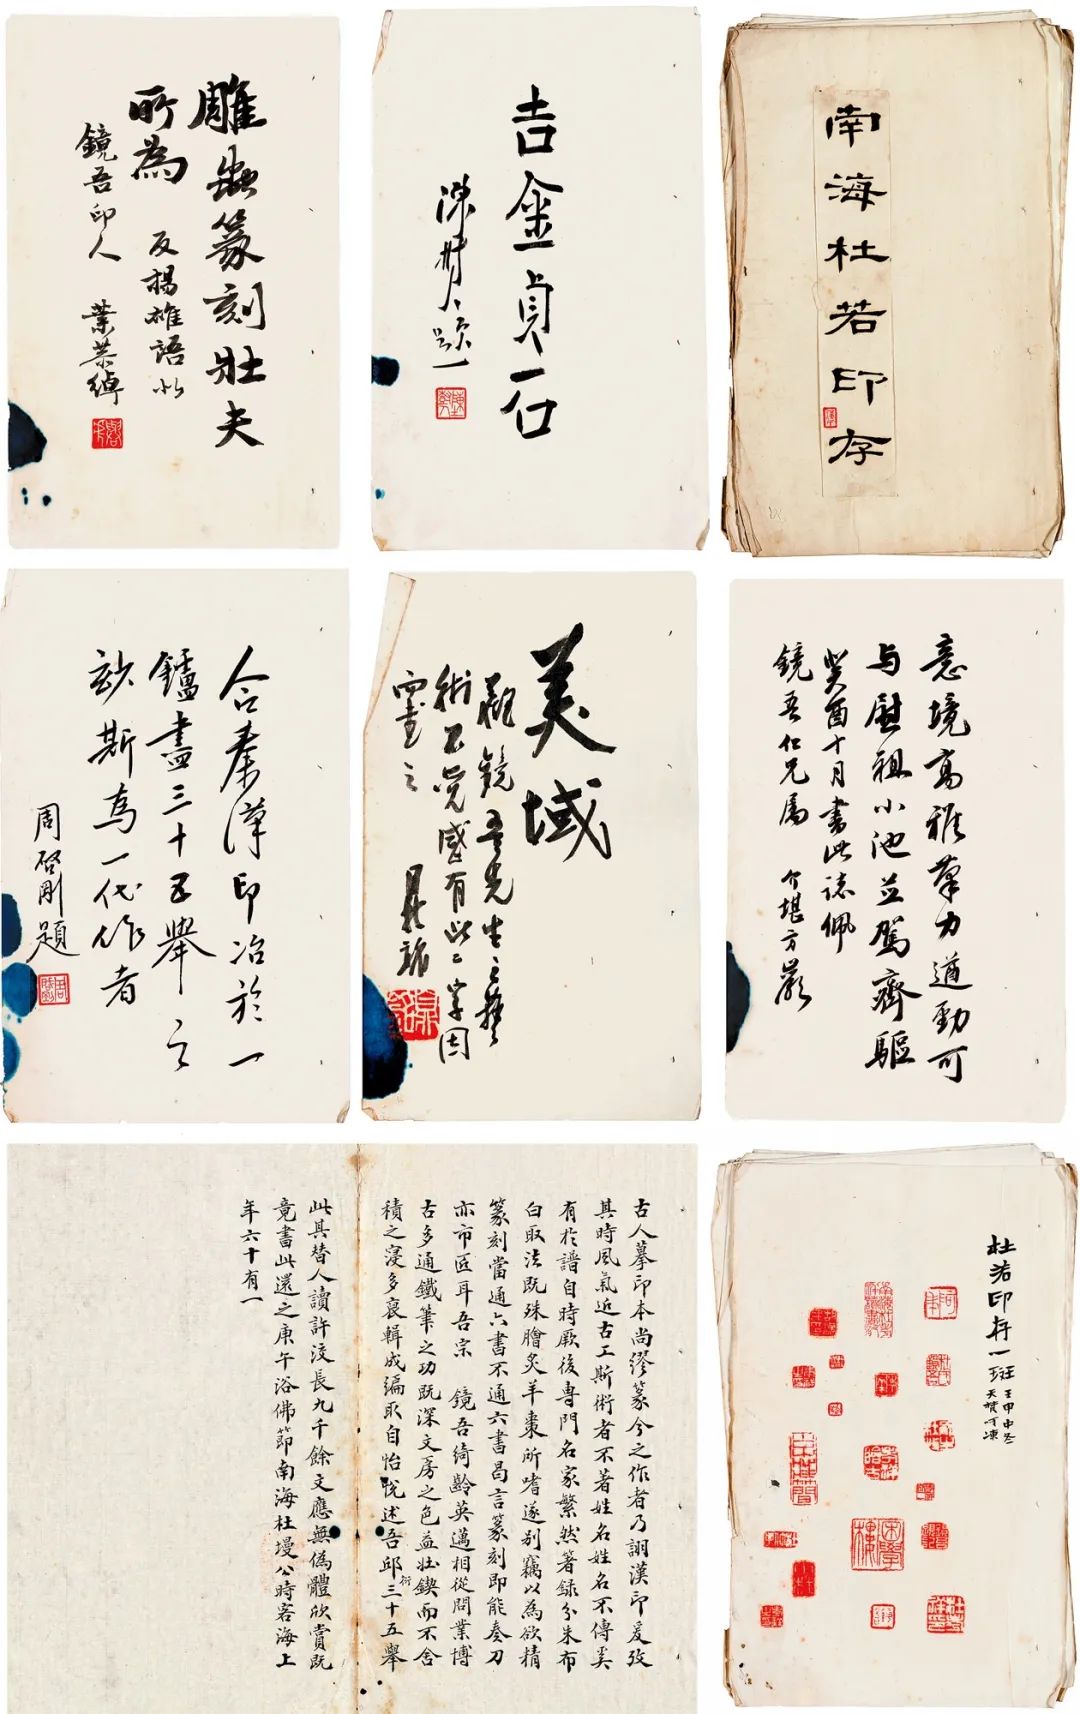 雕蟲篆刻壯夫
所為
反揚雄語以
鏡吾印人
葉恭綽
吉金貞石
陳樹人題
南海杜若印存
合秦漢印冶於一
鑪盡三十五舉之
玅斯為一代作者
周啓剛題
美域
觀鏡吾先生之藝
術不覺感有此二字因
畫之
意境高雅筆力遒勁可
与慰祖小池並駕齊驅
癸酉十月書此誌佩
鏡吾仁兄屬
介堪方巖
古人摹印本尚繆篆今之作者乃詡漢印爰攷
其時風氣近古工斯術者不著姓名姓名不傳奚
有於譜自時厥後專門名家繁然著錄分朱布
白取法既殊膾炙羊棗所嗜遂別竊以為欲精
篆刻當通六書不通六書曷言篆刻即能奏刀
亦市匠耳吾宗 鏡吾綺齡英邁相從問業博
古多通鐵筆之功既深文房之色益壯鍥而不舍
積之寖多裒輯成編取自怡悅述吾邱衍三十五舉
此其替人讀許洨長九千餘文應無偽體欣賞既
竟書此還之庚午浴佛節南海杜墁公時客海上
年六十有一
杜若印存一斑
壬申中冬